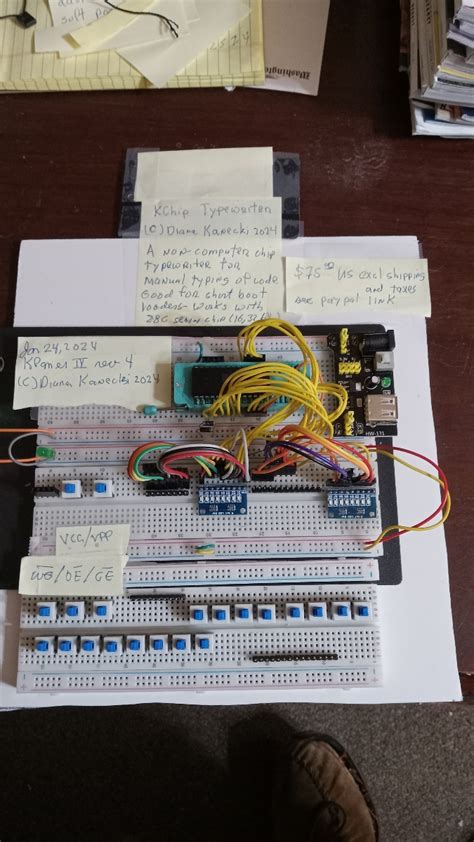 soft
Washington
KChip Typewriter
(C) Diana Kawecki 2024
A non-computer chip
typewriter for
Manual typing of code
Good for short boot
loaders - works with
28C series chip (16, 32, 64)
$75.00 US excl shipping
and taxes
see paypal link
Jan 24, 2024
rev 4
(C) Diana Kawecki 2024
HW-131
VCC/VPP
WE/OE/CE